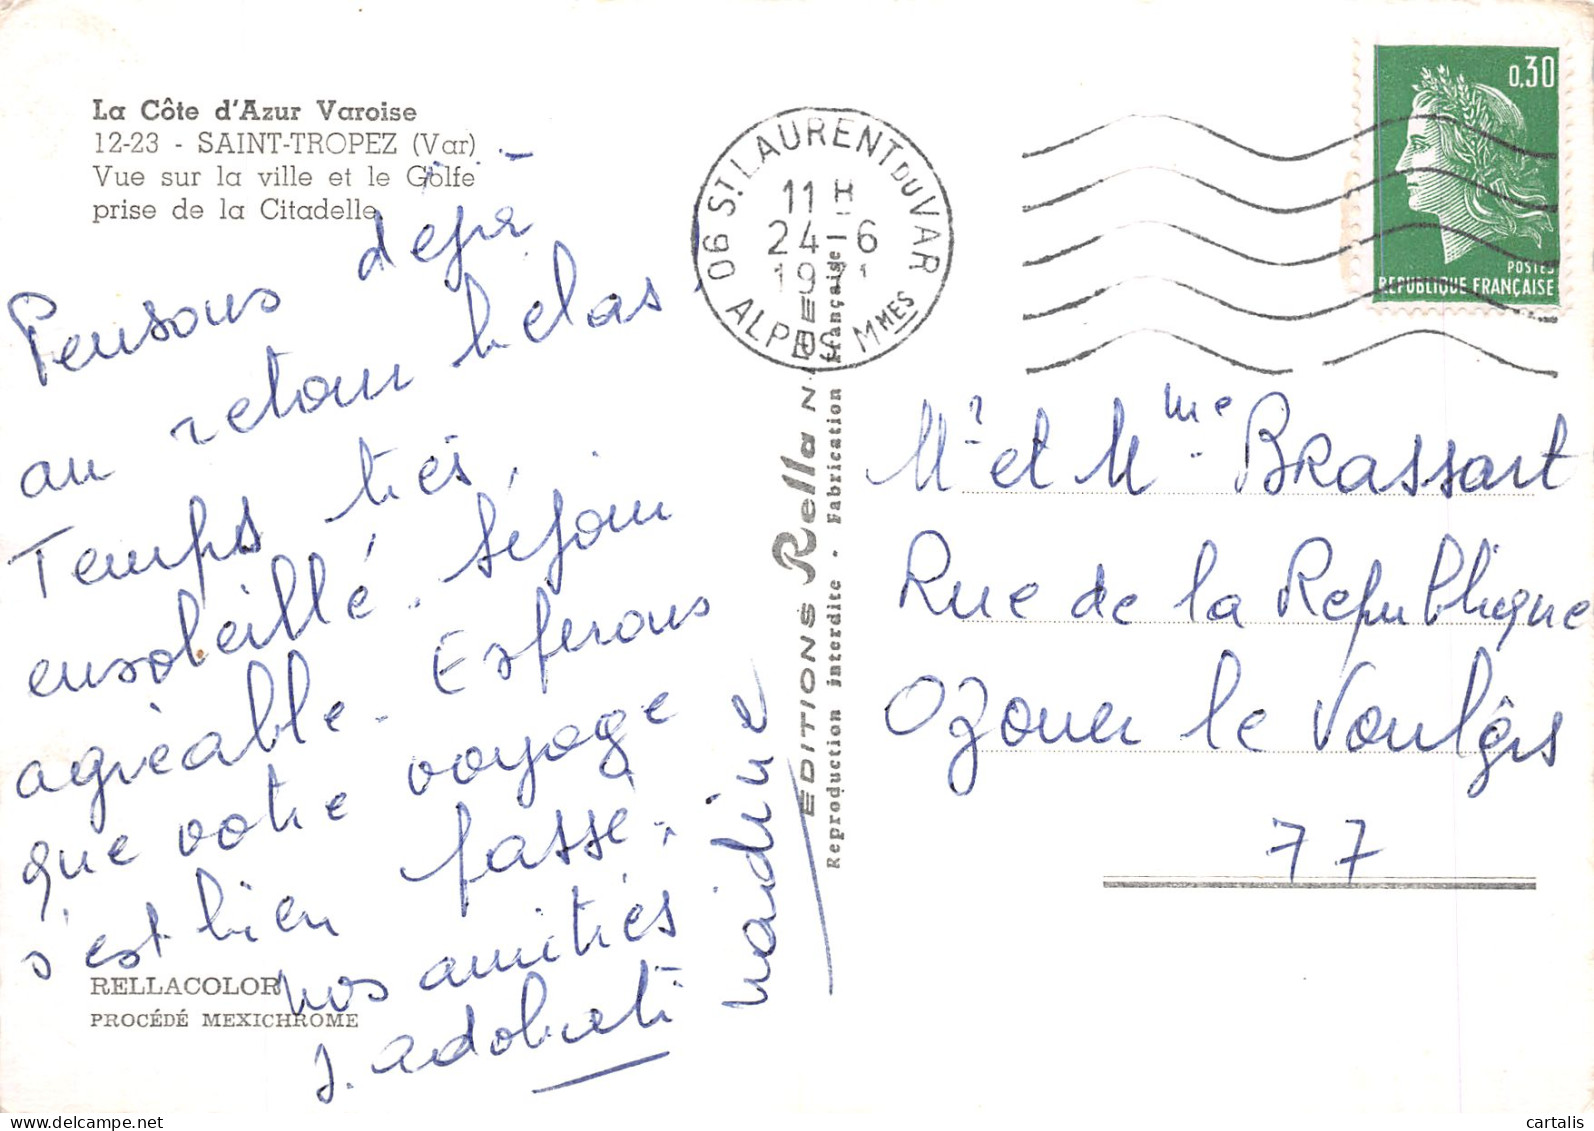 La Côte d'Azur Varoise
12-23 - SAINT-TROPEZ (Var)
Vue sur la ville et le Golfe
prise de la Citadelle
Pensons déjà
au retour hélas!
Temps très
ensoleillé. Séjour
agréable. Espérons
que votre voyage
s'est bien passé.
nos amitiés
nadine
RELLACOLOR
PROCÉDÉ MEXICHROME
EDITIONS Rella NICE
Reproduction interdite - Fabrication Française
06 ST LAURENT DU VAR
11 H
24-6
1971
ALPES MMES
0,30
POSTES
REPUBLIQUE FRANÇAISE
Mr et Mme Brassart
Rue de la Republique
Ozouer le Voulgis
77
cartalis
delcampe.net